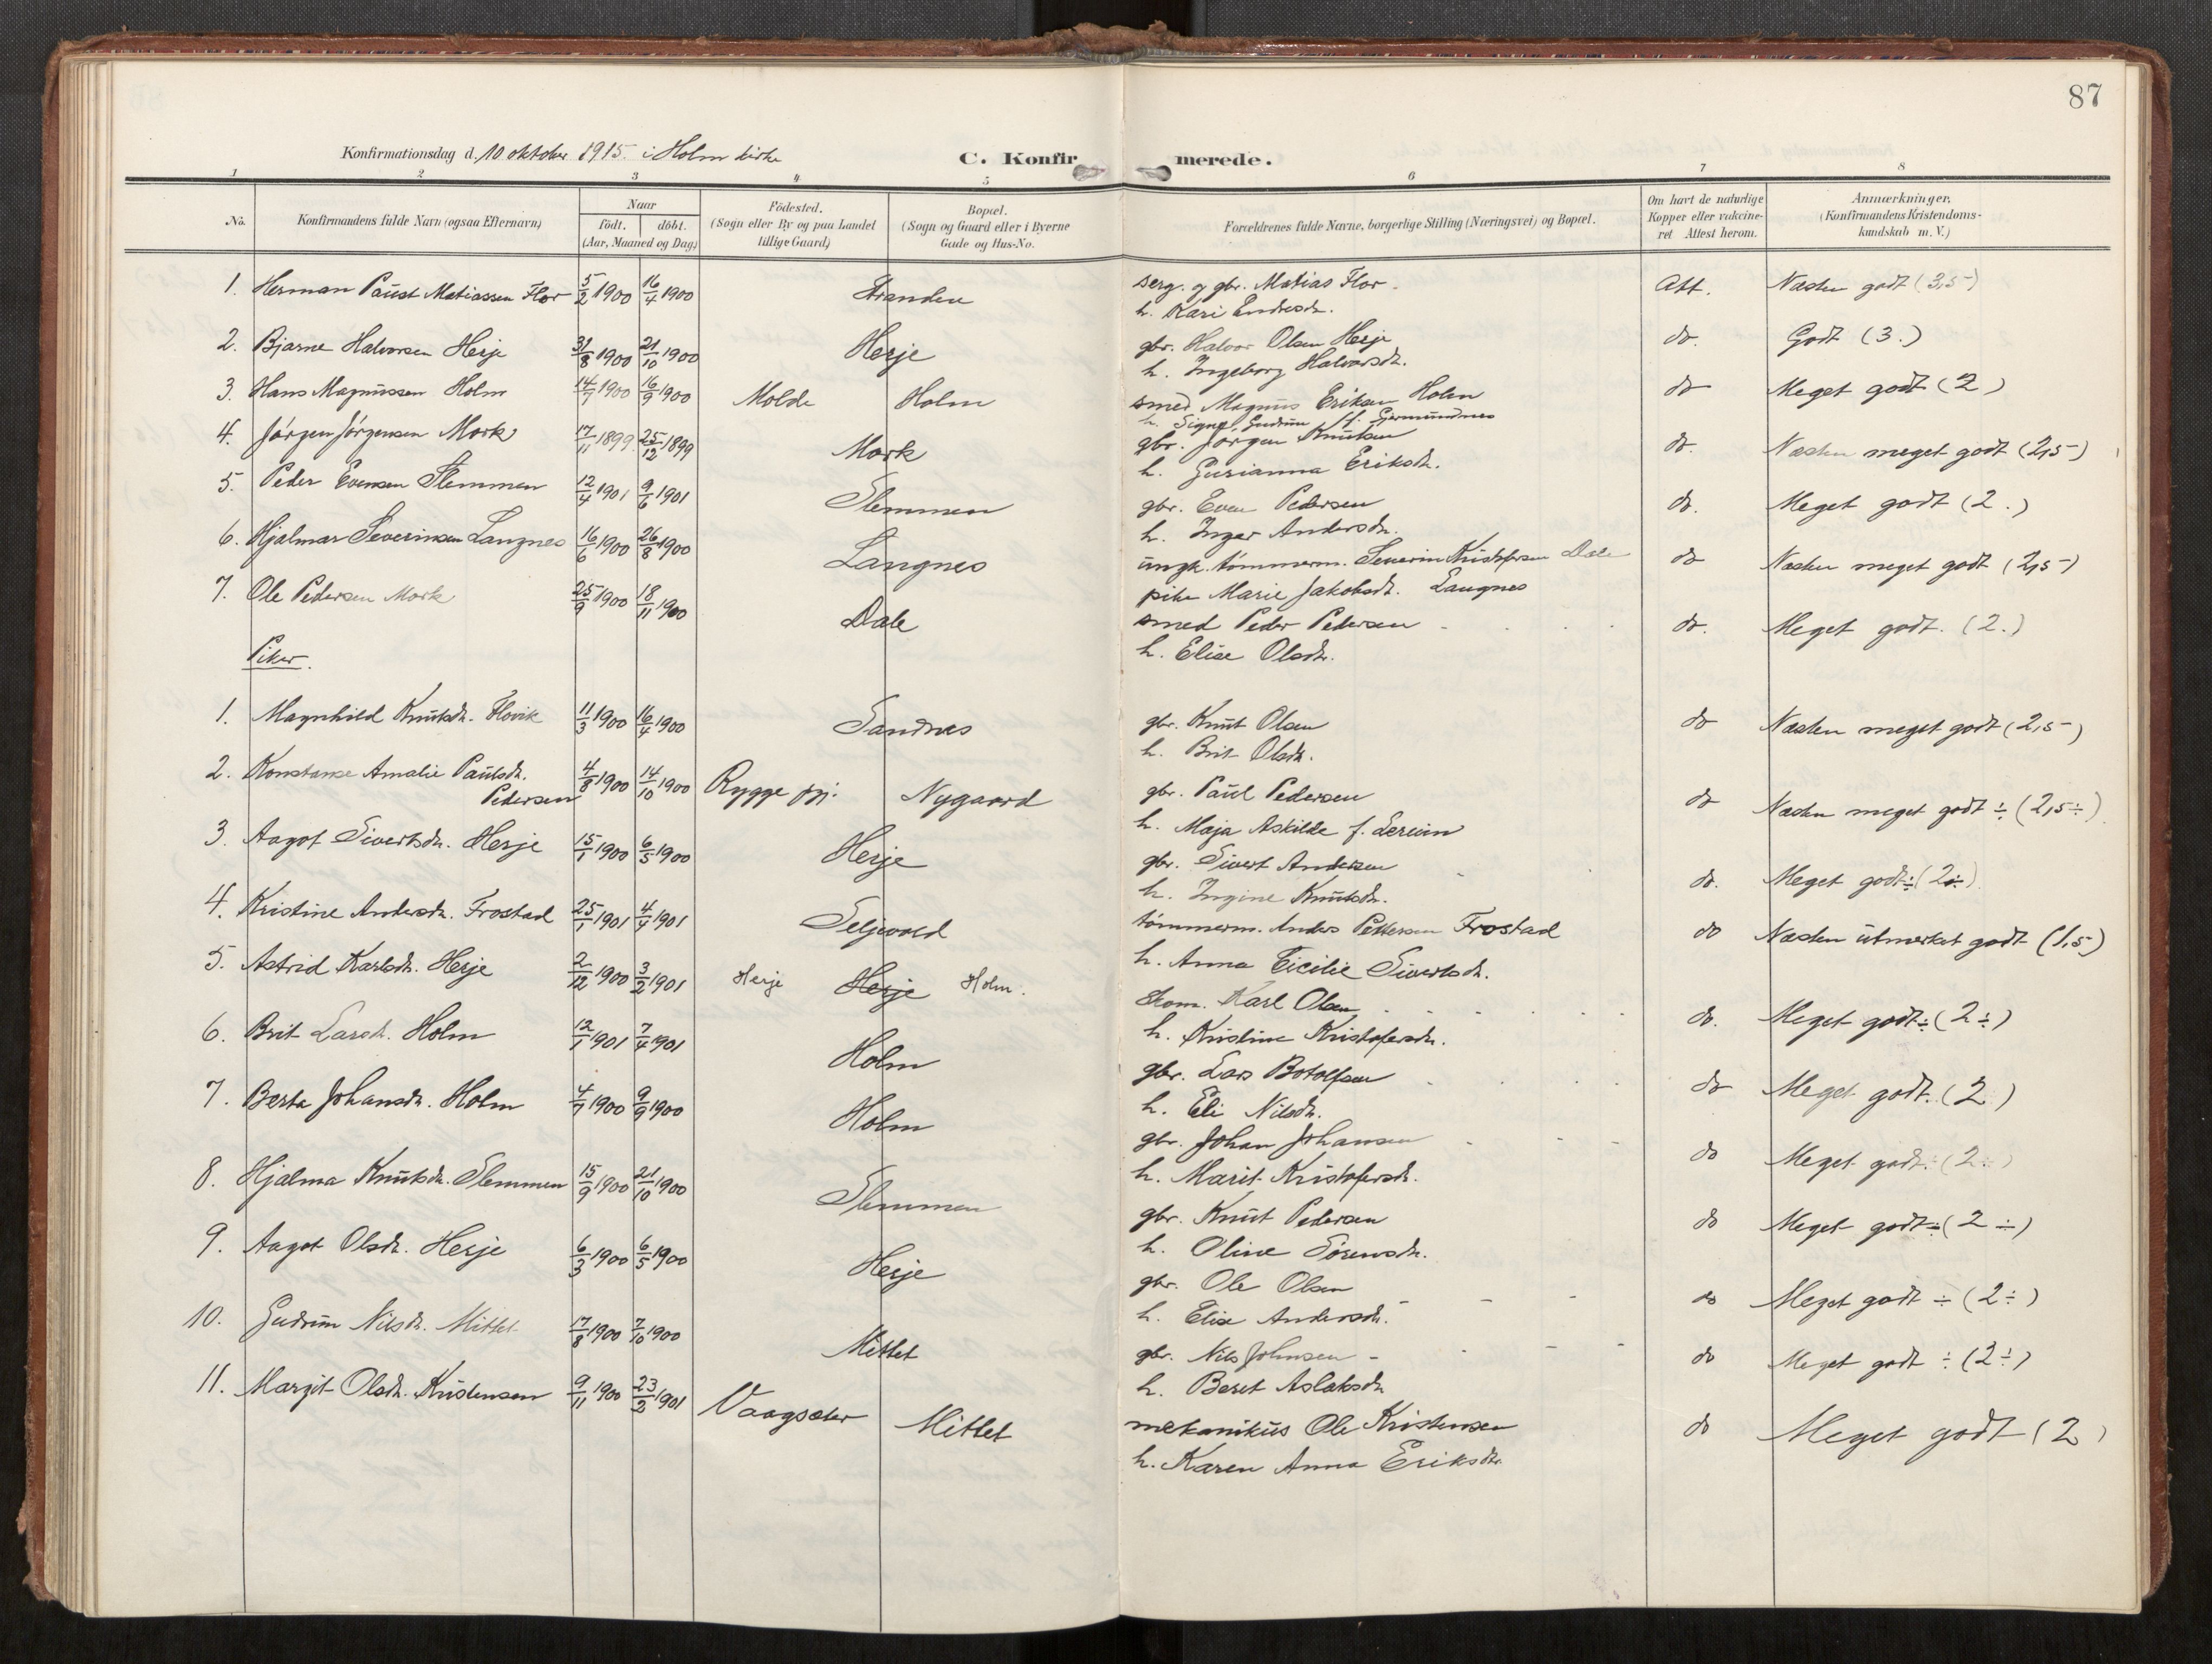 87
Konfirmationsdag d. 10 oktober 1915 i Holm kirke C. Konfir merede.
1 2 3 4 5 6 7 8
No. Konfirmandens fulde Navn (ogsaa Efternavn)
Naar
födt. döbt.
(Aar, Maaned og Dag)
Födested.
(Sogn eller By og paa Landet
tillige Gaard)
Bopæl.
(Sogn og Gaard eller i Byerne
Gade og Hus-No.
Forældrenes fulde Navne, borgerlige Stilling (Næringsvei) og Bopæl.
Om havt de naturlige
Kopper eller vakcine-
ret Attest herom.
Anmærkninger,
(Konfirmandens Kristendoms-
kundskab m. V.)
1. Herman Paust Matiassen Flor 5/2 1900 16/4 1900 Stranden serg. og gbr. Matias Flor. Att. Næsten godt (3,5-)
h. Kari Endresdr.
2. Bjarne Halvorsen Herje 31/8 1900 21/10 1900 Herje gbr. Halvor Olsen Herje do. Godt (3.)
h. Ingeborg Halvorsdr.
3. Hans Magnussen Holm 14/7 1900 16/9 1900 Molde Holm smed Magnus Eriksen Holm do Meget godt (2)
h. Signe Gudrun f. Gjermundnes
4. Jørgen Jørgensen Mork 17/11 1899 25/12 1899 Mork gbr. Jørgen Knutsen do. Næsten meget godt (2,5-)
h. Gurianna Eriksdr.
5. Peder Evensen Slemmen 12/4 1901 9/6 1901 Slemmen gbr. Even Pedersen do. Meget godt (2.)
h. Inger Andersdr.
6. Hjalmar Severinsen Langnes 16/6 1900 26/8 1900 Langnes ungk. tømmerm. Severin Kristofersen Dale do Næsten meget godt (2,5-)
pike Marie Jakobsdr. Langnes
7. Ole Pedersen Mork 25/9 1900 18/11 1900 Dale smed Peder Pedersen do. Meget godt. (2.)
h. Elise Olsdr.
Piker.
1. Magnhild Knutsdr. Hovik 11/3 1900 16/4 1900 Sandnes gbr. Knut Olsen do Næsten meget godt (2,5-)
h. Brit Olsdr.
2. Konstanse Amalie Paulsdr. 4/8 1900 14/10 1900 Rygge pgj. Nygaard gbr. Paul Pedersen do Næsten meget godt ÷ (2,5÷)
Pedersen h. Maja Askilde f. Lereim
3. Aagot Sivertsdr. Herje 15/1 1900 6/5 1900 Herje gbr. Sivert Andersen do. Meget godt÷ (2÷)
h. Ingine Knutsdr.
4. Kristine Andersdr. Frostad 25/1 1901 4/4 1901 Seljevold tømmerm. Anders Pettersen Frostad do Næsten utmerket godt (1,5)
h. Anna Cicilie Sivertsdr.
5. Astrid Karlsdr. Herje 2/12 1900 3/2 1901 Herje Herje Holm. skom. Karl Olsen do. Meget godt÷ (2÷)
h. Kristine Kristofersdr.
6. Brit Larsdr. Holm 12/1 1901 7/4 1901 Holm gbr. Lars Botolfsen do Meget godt. (2)
h. Eli Nilsdr.
7. Berta Johansdr. Holm 4/7 1900 9/9 1900 Holm gbr. Johan Johansen do Meget godt÷ (2÷)
h. Marit Kristofersdr.
8. Hjalma Knutsdr. Slemmen 15/9 1900 21/10 1900 Slemmen gbr. Knut Pedersen do Meget godt÷ (2÷)
h. Oline Sørensdr.
9. Aagot Olsdr. Herje 6/3 1900 6/5 1900 Herje gbr. Ole Olsen do Meget godt ÷ (2÷)
h. Elise Andersdr.
10. Gudrun Nilsdr. Mittet 17/8 1900 7/10 1900 Mittet gbr. Nils Johnsen do Meget godt ÷ (2÷)
h. Beret Aslaksdr
11. Margit Olsdr. Kristensen 9/11 1900 23/2 1901 Vaagsæter Mittet mekanikus Ole Kristensen do Meget godt (2)
h. Karen Anna Eriksdtr.